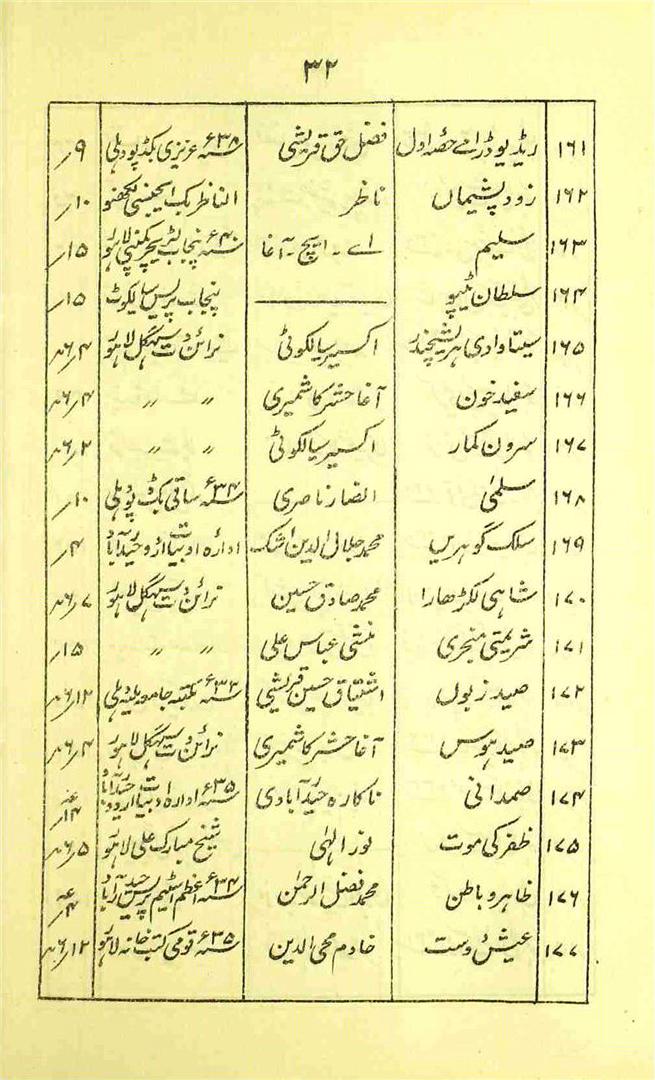 ۳۲
۱۶۱ ریڈیو ڈرامے حصہ اول فضل حق قریشی ۶۳۸ء عزیزی بکڈپو دہلی ۹ر
۱۶۲ زود پشیماں ناظر الناظر بک ایجنسی لکھنؤ ۱۰ر
۱۶۳ سلیم اے۔ ایچ۔ آغا ۶۴۰ء پنجاب لٹریچر کمپنی لاہور ۱۵ر
۱۶۴ سلطان ٹیپو ——— پنجاب پریس سیالکوٹ ۱۵ر
۱۶۵ ستیاوادی ہریشچندر اکسیر سیالکوٹی نرائن دت سہگل لاہور ۴ر۶
۱۶۶ سفید خون آغا حشر کاشمیری 〃 〃 ۴ر۶
۱۶۷ سرون کمار اکسیر سیالکوٹی 〃 〃 ۲ر۶
۱۶۸ سلمیٰ انصار ناصری ۶۳۴ء ساقی بکڈپو دہلی ۱۰ر
۱۶۹ سلک گوہریں محمد جلال الدین اشک ادارہ ادبیات اردو حیدرآباد ۴ر
۱۷۰ شاہی لکڑھارا محمد صادق حسین نرائن دت سہگل لاہور ۷ر۶
۱۷۱ شریمتی منجری منشی عباس علی 〃 〃 ۱۵ر
۱۷۲ صید زبول اشتیاق حسین قریشی ۶۳۳ء مکتبہ جامعہ ملیہ دہلی ۱۲ر۶
۱۷۳ صید ہوس آغا حشر کاشمیری نرائن دت سہگل لاہور ۴ر۶
۱۷۴ صمدانی ناکارہ حیدرآبادی ۶۳۵ء ادارہ ادبیات اردو حیدرآباد ۱۴ر
۱۷۵ ظفر کی موت نور الہٰی شیخ مبارک علی لاہور ۵ر۶
۱۷۶ ظاہر و باطن محمد فضل الرحمٰن ۶۳۴ء اعظم اسٹیم پریس حیدرآباد ۴ر
۱۷۷ عیش وست خادم محی الدین ۶۳۵ء قومی کتب خانہ لاہور ۱۲ر۶